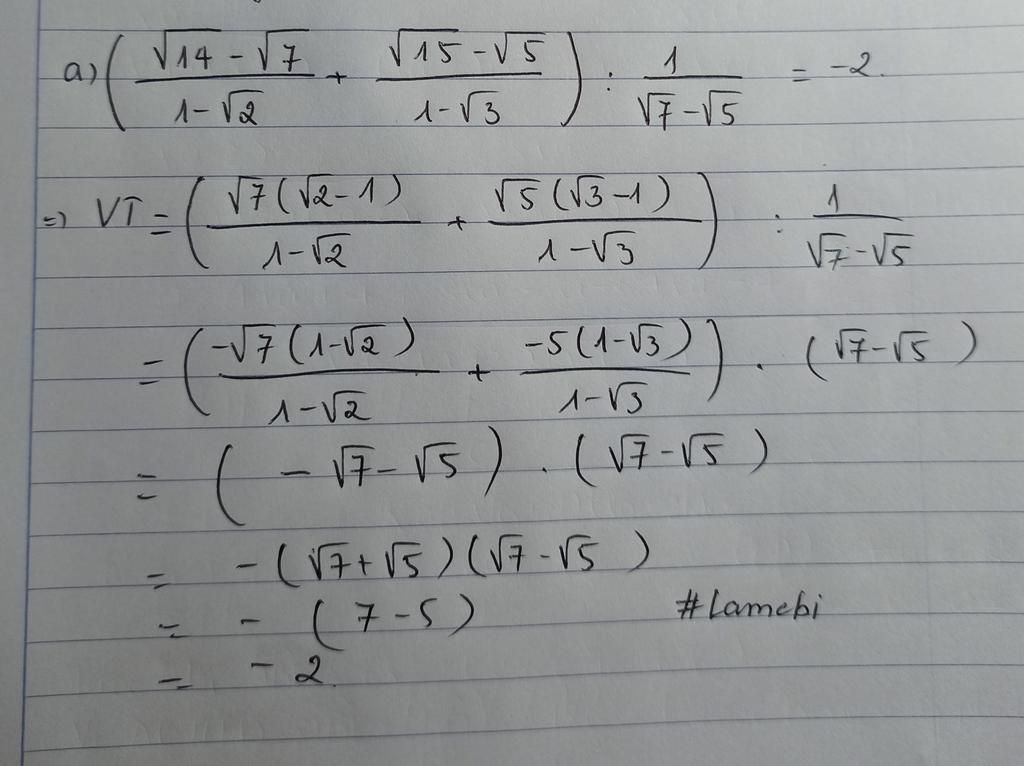 a) ( (√14 - √7)/(1 - √2) + (√15 - √5)/(1 - √3) ) : 1/(√7 - √5) = -2.
=> VT = ( √7(√2 - 1)/(1 - √2) + √5(√3 - 1)/(1 - √3) ) : 1/(√7 - √5)
= ( -√7(1 - √2)/(1 - √2) + -5(1 - √3)/(1 - √3) ) . (√7 - √5)
= ( - √7 - √5 ) . (√7 - √5)
= - (√7 + √5)(√7 - √5)
= - (7 - 5)
#Lamebi
= - 2